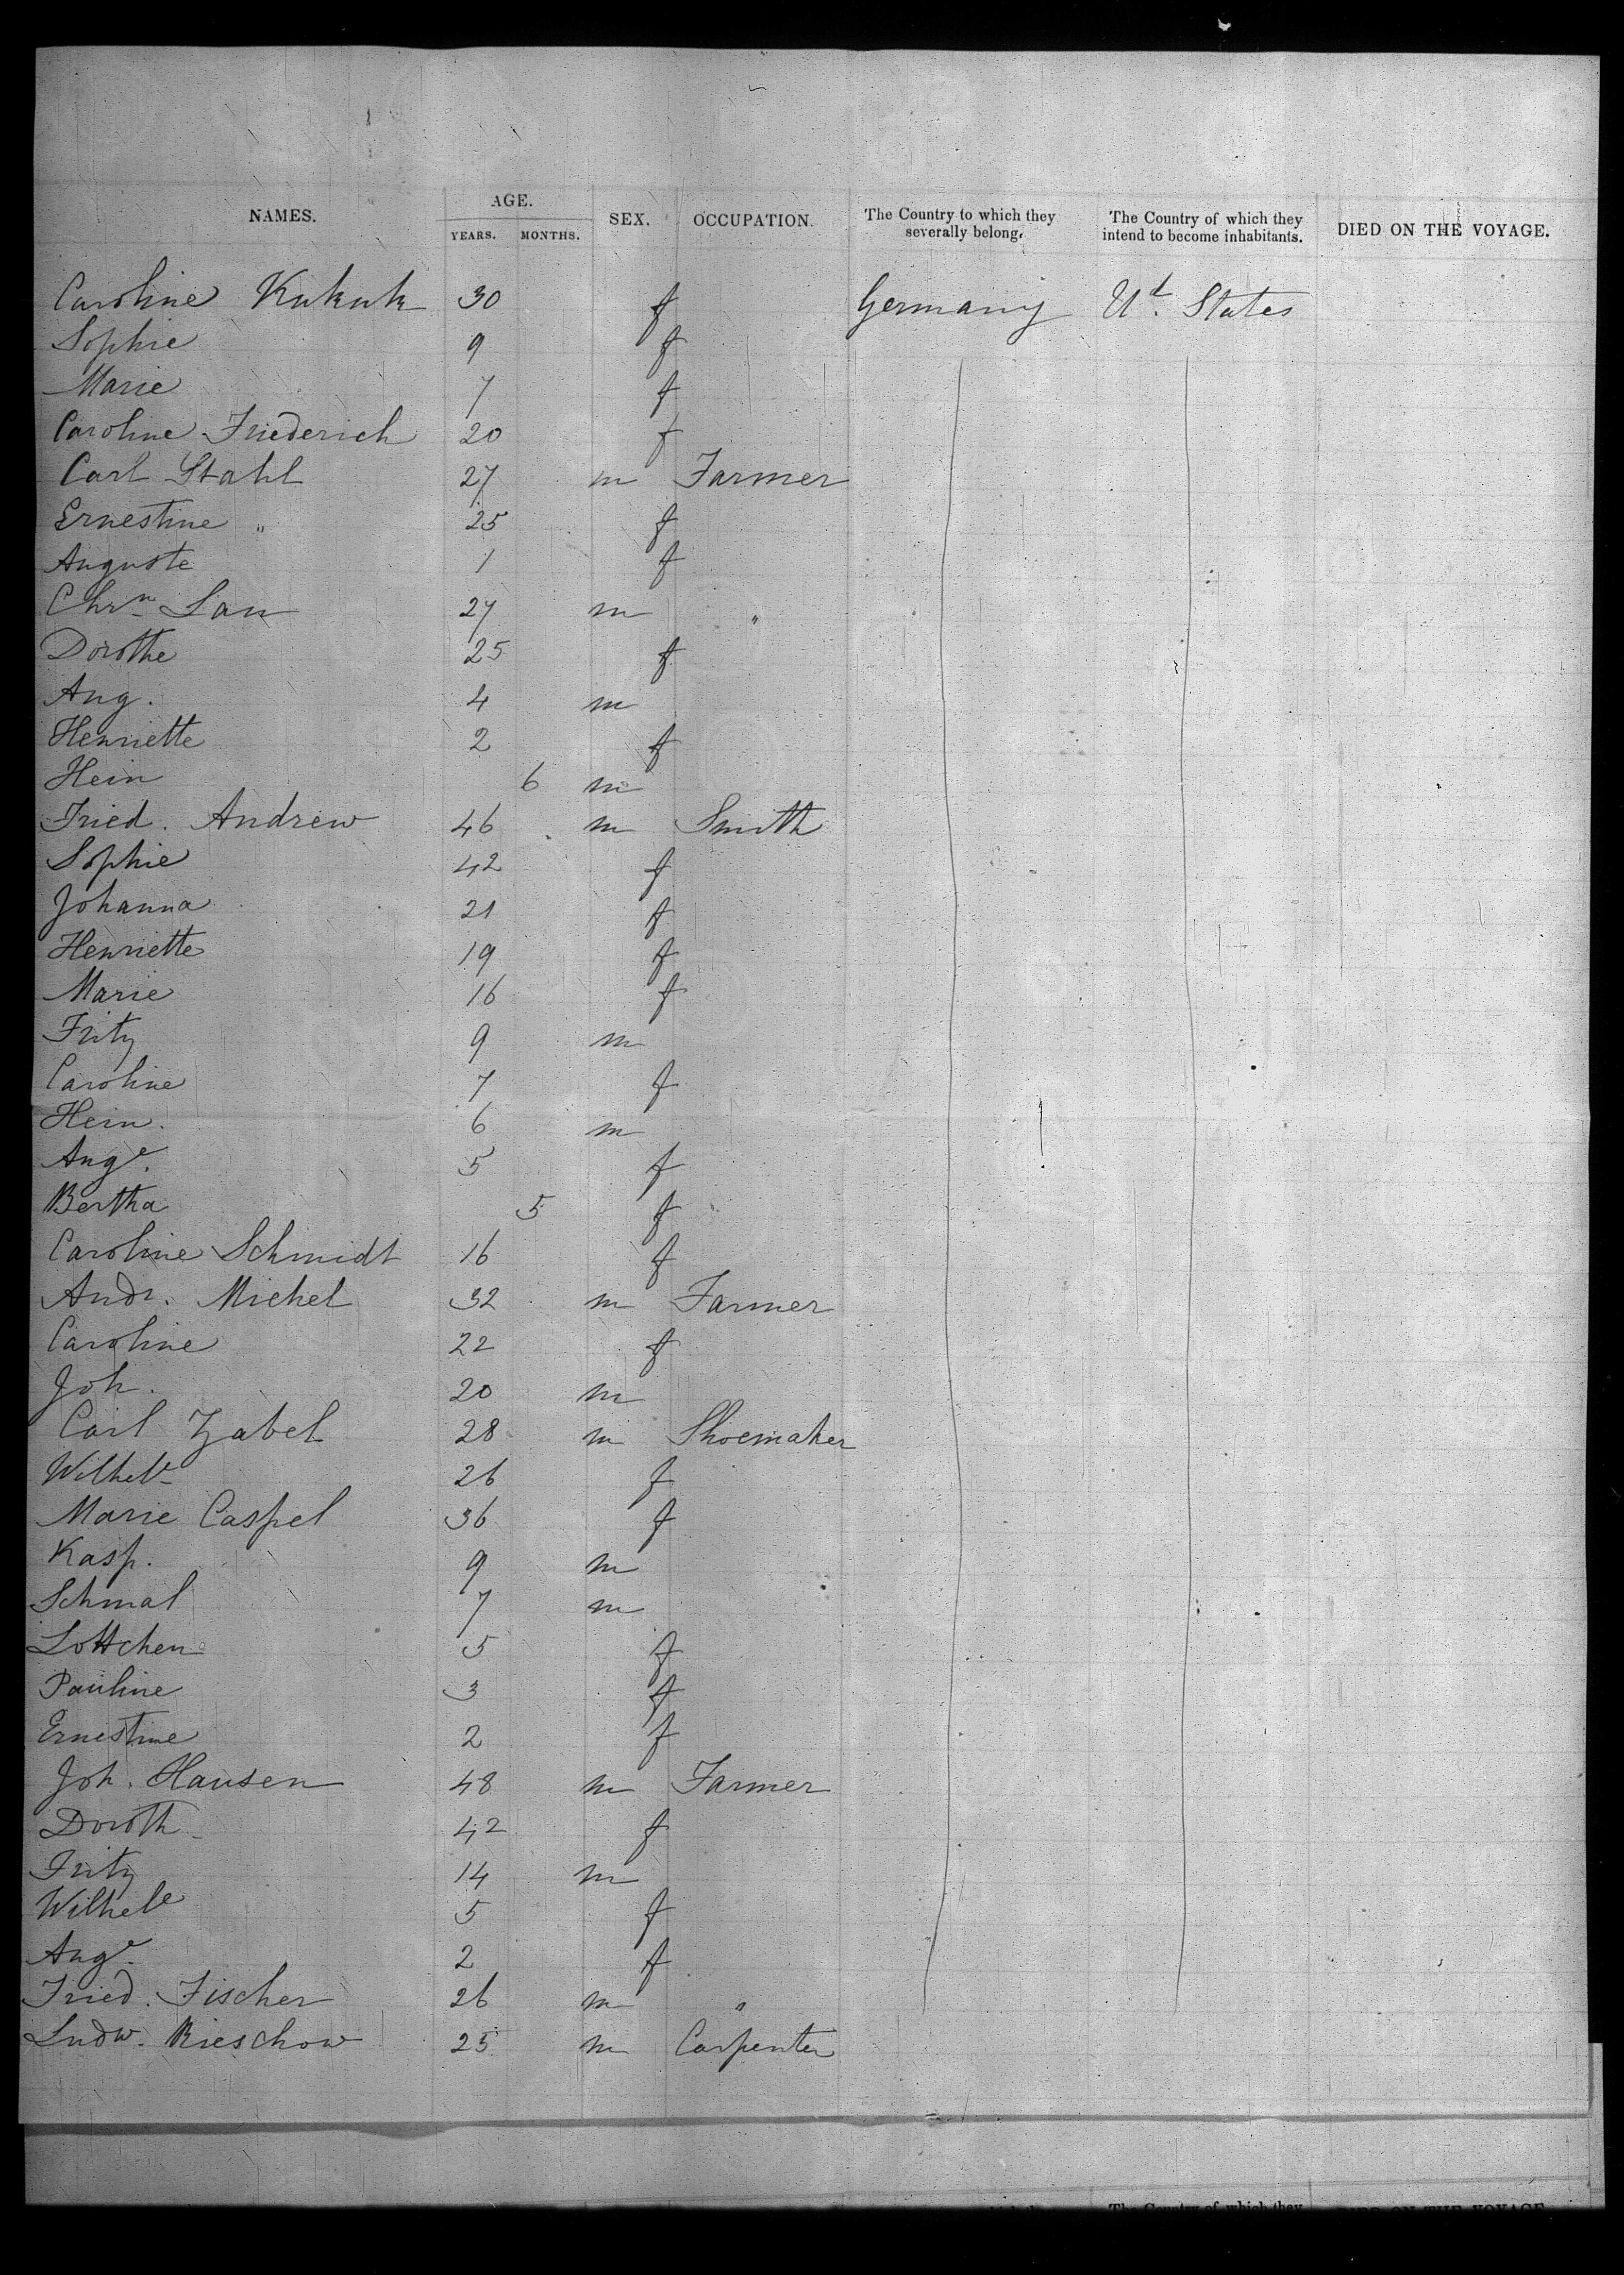 NAMES. AGE. SEX. OCCUPATION. The Country to which they severally belong. The Country of which they intend to become inhabitants. DIED ON THE VOYAGE.
YEARS. MONTHS.
Caroline Kukuk 30 f Germany Ud. States
Sophie 9 f
Marie 7 f
Caroline Friederich 20 f
Carl Stahl 27 m Farmer
Ernestine " 25 f
Auguste 1 f
Chrn Lau 27 m "
Dorothe 25 f
Aug. 4 m
Henriette 2 f
Hein 6 m
Fried. Andrew 46 m Smith
Sophie 42 f
Johanna 21 f
Henriette 19 f
Marie 16 f
Fritz 9 m
Caroline 7 f
Hein. 6 m
Auge. 5 f
Bertha 5 f
Caroline Schmidt 16 f
Andr. Michel 32 m Farmer
Caroline 22 f
Joh. 20 m
Carl Zabel 28 m Shoemaker
Wilhele 26 f
Marie Caspel 36 f
Kasp. 9 m
Schmal 7 m
Lottchen 5 f
Pauline 3 f
Ernestine 2 f
Joh. Hausen 48 m Farmer
Doroth 42 f
Fritz 14 m
Wilhele 5 f
Auge. 2 f
Fried. Fischer 26 m "
Ludw. Rieschow 25 m Carpenter
The Country of which they DIED ON THE VOYAGE